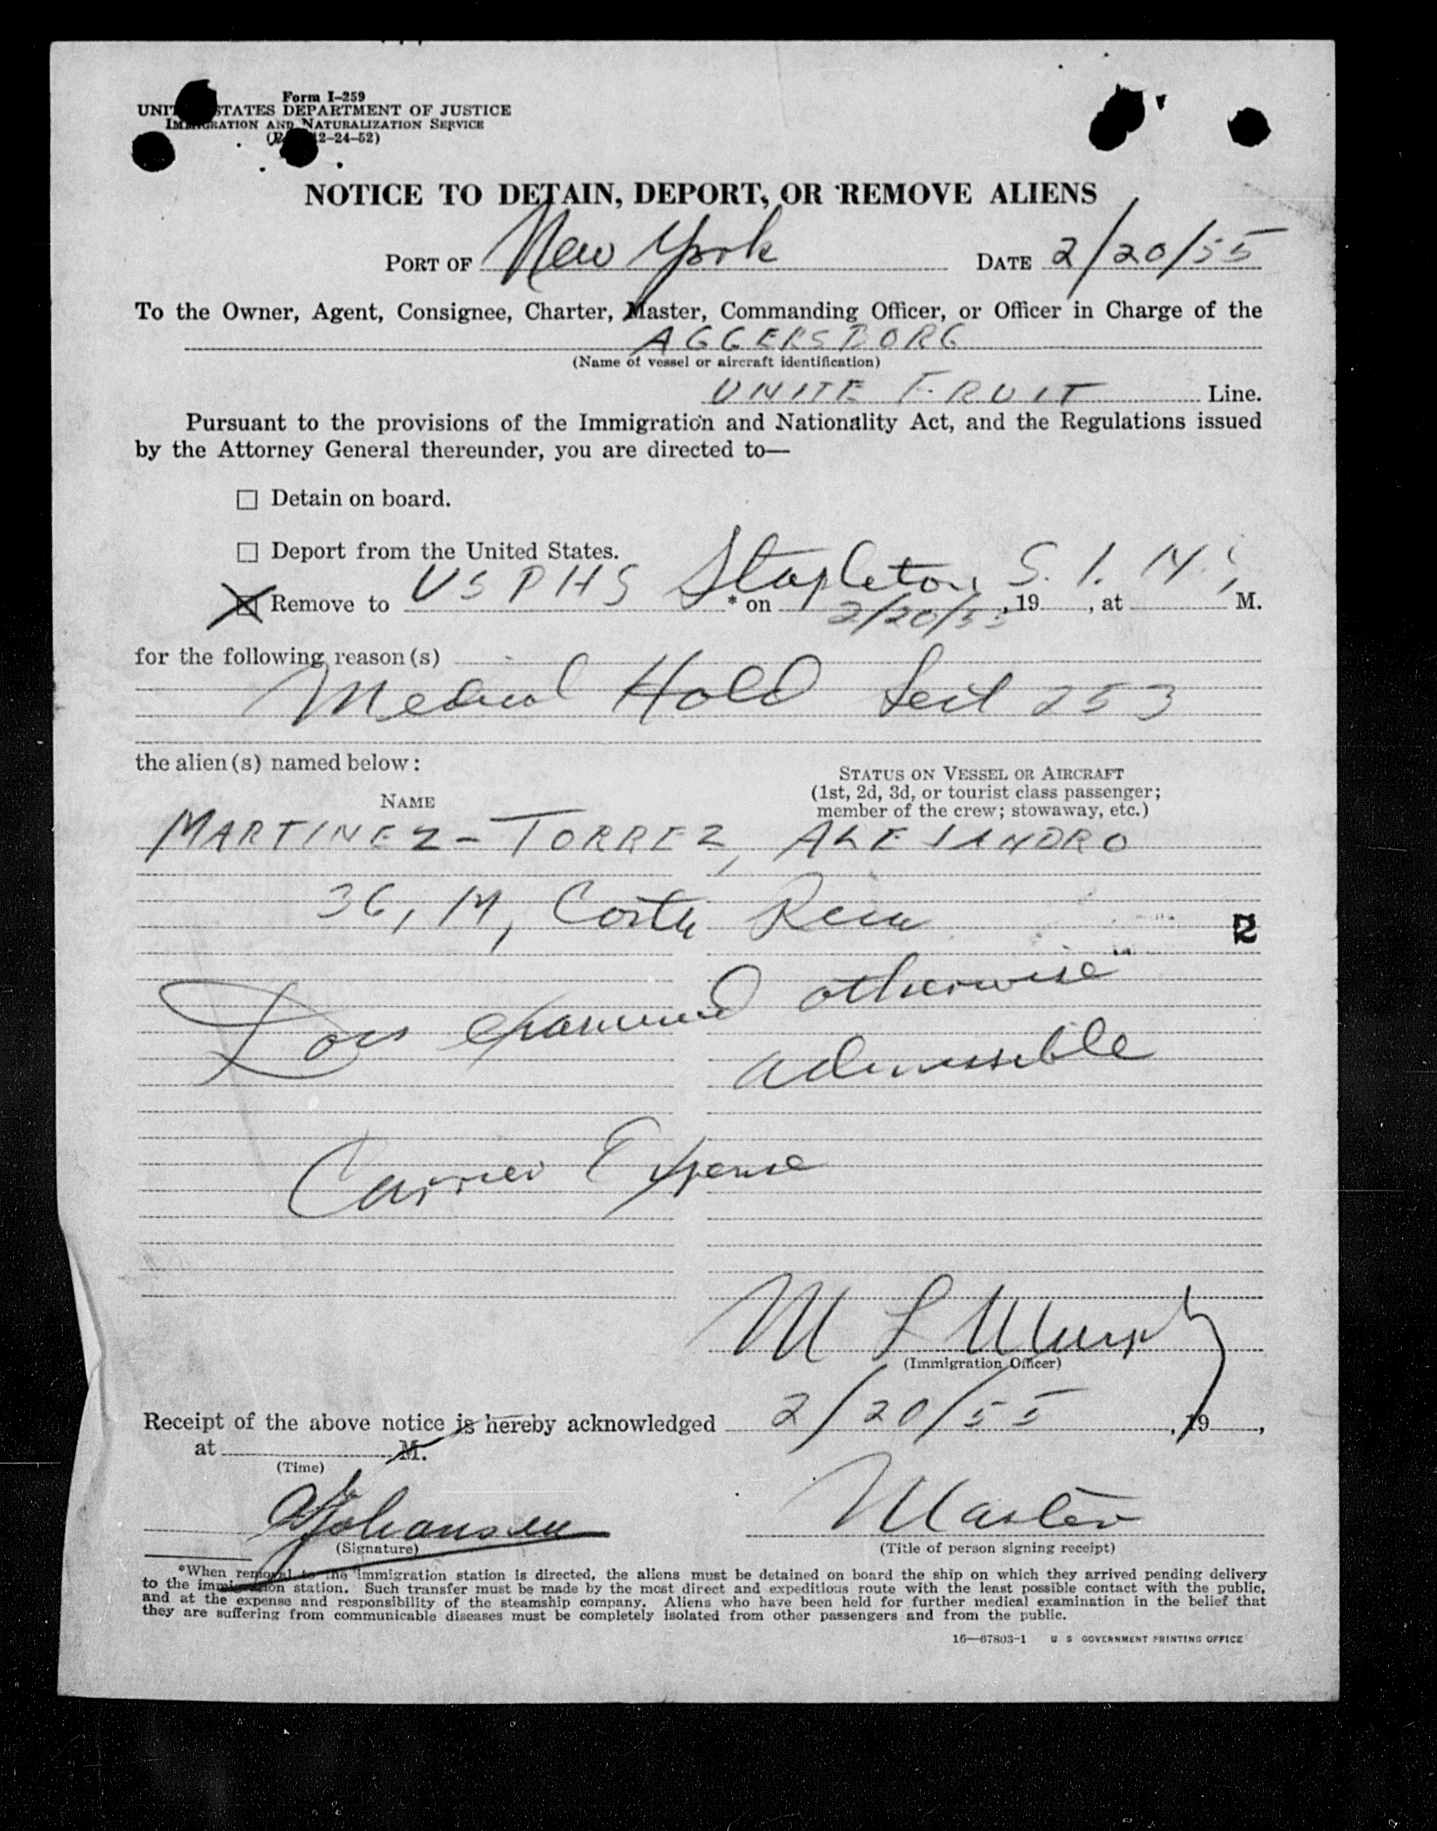 Form I-259
UNITED STATES DEPARTMENT OF JUSTICE
IMMIGRATION AND NATURALIZATION SERVICE
12-24-52)
NOTICE TO DETAIN, DEPORT, OR REMOVE ALIENS
PORT OF New York DATE 2/20/55
To the Owner, Agent, Consignee, Charter, Master, Commanding Officer, or Officer in Charge of the
AGGERSBORG
(Name of vessel or aircraft identification)
UNITE FRUIT Line.
Pursuant to the provisions of the Immigration and Nationality Act, and the Regulations issued
by the Attorney General thereunder, you are directed to—
☐ Detain on board.
☐ Deport from the United States.
☒ Remove to USPHS Stapleton, S. I. N.Y. * on 2/20/55, 19 , at M.
for the following reason(s)
Medical Hold Sect 253
the alien(s) named below:
STATUS ON VESSEL OR AIRCRAFT
(1st, 2d, 3d, or tourist class passenger;
member of the crew; stowaway, etc.)
NAME
MARTINEZ-TORREZ, ALEJANDRO
36, M, Costa Rica
2
examined otherwise
admissible
Carrier Expense
M L Murphy
(Immigration Officer)
Receipt of the above notice is hereby acknowledged 2/20/55, 19 ,
at M.
(Time)
Johansen Master
(Signature) (Title of person signing receipt)
*When removal to the immigration station is directed, the aliens must be detained on board the ship on which they arrived pending delivery
to the immigration station. Such transfer must be made by the most direct and expeditious route with the least possible contact with the public,
and at the expense and responsibility of the steamship company. Aliens who have been held for further medical examination in the belief that
they are suffering from communicable diseases must be completely isolated from other passengers and from the public.
16—67803-1 U S GOVERNMENT PRINTING OFFICE